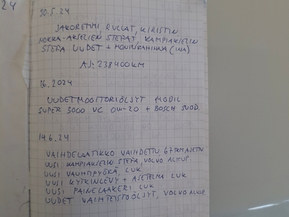 24
30.5.24
JAKORETIMI, RULLAT, KIRISTIN
NOKKA-AKSELIEN STEFAT, KAMPIAKSELIN
STEFA UUDET +
AJ: 238400KM
1.6.2024
UUDET MOOTTORIÖLJYT MOBIL
SUPER 3000 VC 0W-20 + BOSCH SUOD.
19.6.24
VAIHDELAATIKKO VAIHDETTU
UUSI KAMPIAKSELIN STEFA, VOLVO ALKUP
UUSI VAUHTIPYÖRÄ LUK
UUSI KYTKINLEVY + ASETELMA LUK
UUSI PAINELAAKERI LUK
UUDET VAIHTEISTOÖLJYT, VOLVO ALKUP